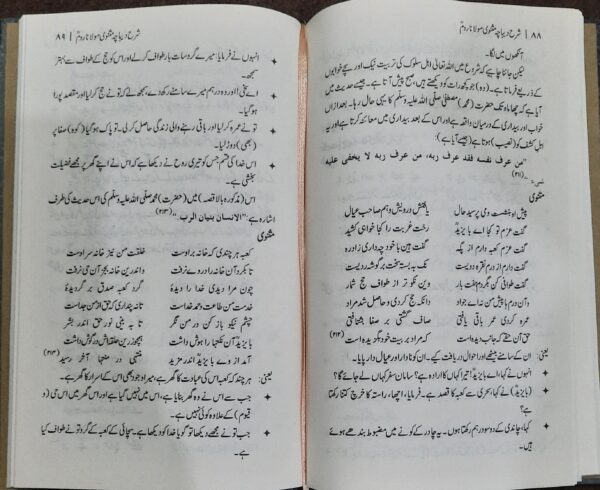 ۸۸ | شرح دیباچہ مثنوی مولانا رومؒ
آنکھوں میں لگا۔
لیکن جاننا چاہیے کہ شروع میں اللہ تعالیٰ اہل سلوک کی تربیت نیک اور سچے خوابوں
کے ذریعے فرماتا ہے۔ (وہ) جو کچھ رات کو دیکھتے ہیں، صبح پیش آتا ہے۔ جیسے حدیث میں
آیا ہے کہ چھ ماہ تک حضرت (محمد) مصطفیٰ صلی اللہ علیہ وسلم کا یہی حال رہا۔ بعد ازاں
خواب اور بیداری کے درمیان واقعہ ہے اور اس کے بعد بیداری میں معائنہ کرتا ہے اور یہ
اہل کشف کو (نصیب) ہوتا ہے (جیسے آیا ہے):
"من عرف نفسه فقد عرف ربه، من عرف ربه لا يخفى عليه
شیء" (۲۱۱)
مثنوی
پیش او بنشست و می پرسید حال
یافتش درویش و ہم صاحب عیال
گفت عزم تو کجا اے بایزیدؒ
رخت غربت را کجا خواہی کشید
گفت عزم کعبہ دارم از پگہ
گفت ہین با خود چہ داری زادرہ
گفت دارم از درم نقرہ دویست
نک بہ بستہ سخت بر گوشہ ردیست
گفت طوافی کن بگردم ہفت بار
وین نکو تر از طواف حج شمار
و آن درم ہا پیش من نہ اے جواد
دانکہ حج کردی و حاصل شد مراد
عمرہ کردی عمر باقی یافتی
صاف گشتی بر صفا بشتافتی
حق آن حقے کہ جانت دیدہ است
کہ مرا بر بیت خود بگزیدہ است (۲۱۲)
یعنی: ان کے سامنے بیٹھے اور احوال دریافت کیے۔ ان کو نادار اور عیال دار پایا۔
✦ انہوں نے کہا، اے بایزیدؒ! تیرا کہاں کا ارادہ ہے؟ سامان سفر کہاں لے جائے گا؟
✦ (بایزیدؒ) نے کہا، سحری سے کعبہ کا قصد ہے۔ فرمایا، اچھا، راستہ کا خرچ کتنا رکھتا
ہے؟
✦ کہا، چاندی کے دو سو درہم رکھتا ہوں۔ یہ چادر کے کونے میں مضبوط بندھے ہوئے
ہیں۔
شرح دیباچہ مثنوی مولانا رومؒ | ۸۹
✦ انہوں نے فرمایا: میرے گرد سات بار طواف کر لے اور اس کو حج کے طواف سے بہتر
سمجھ۔
✦ اے سخی! اور وہ درہم میرے سامنے رکھ دے، سمجھ لے کہ تو نے حج کر لیا اور مقصد پورا
ہو گیا۔
✦ تو نے عمرہ کر لیا اور باقی رہنے والی زندگی حاصل کر لی۔ تو پاک ہو گیا (کوہ) صفا پر
(بھی) دوڑ لیا۔
✦ اس خدا کی قسم جس کو تیری روح نے دیکھا ہے کہ اس نے اپنے گھر پر مجھے فضیلت
بخشی ہے۔
اس (مذکورہ بالا قصہ) میں (حضرت) محمد صلی اللہ علیہ وسلم کی اس حدیث کی طرف
اشارہ ہے: "الانسان بنیان الرب" (۲۱۳)
مثنوی
کعبہ ہر چندی کہ خانہ بر اوست
خلقت من نیز خانہ سر اوست
تا بکرد آن خانہ را در وے نرفت
و اندرین خانہ بجز آن حی نرفت
چون مرا دیدی خدا را دیدۂ
گرد کعبہ صدق بر گردیدۂ
خدمت من طاعت و حمد خداست
تا نہ پنداری کہ حق از من جداست
چشم نیکو باز کن در من نگر
تا بہ بینی نور حق اندر بشر
بایزیدؒ آن نکتہا را ہوش داشت
ہمچو زرین حلقہ اش در گوش داشت
آمد از وے بایزیدؒ اندر مزید
منتہی در منتہا آخر رسید (۲۱۴)
یعنی: ہر چند کہ کعبہ اس کی عبادت کا گھر ہے، میرا وجود بھی اس کے اسرار کا گھر ہے۔
✦ جب سے اس نے وہ گھر بنایا ہے، اس میں نہیں گیا ہے اور اس گھر میں اس حی (و
قیوم) کے علاوہ کوئی نہیں ہے۔
✦ جب تو نے مجھے دیکھا تو گویا خدا کو دیکھا ہے۔ سچائی کے کعبہ کے گرد تو نے طواف کیا
ہے۔